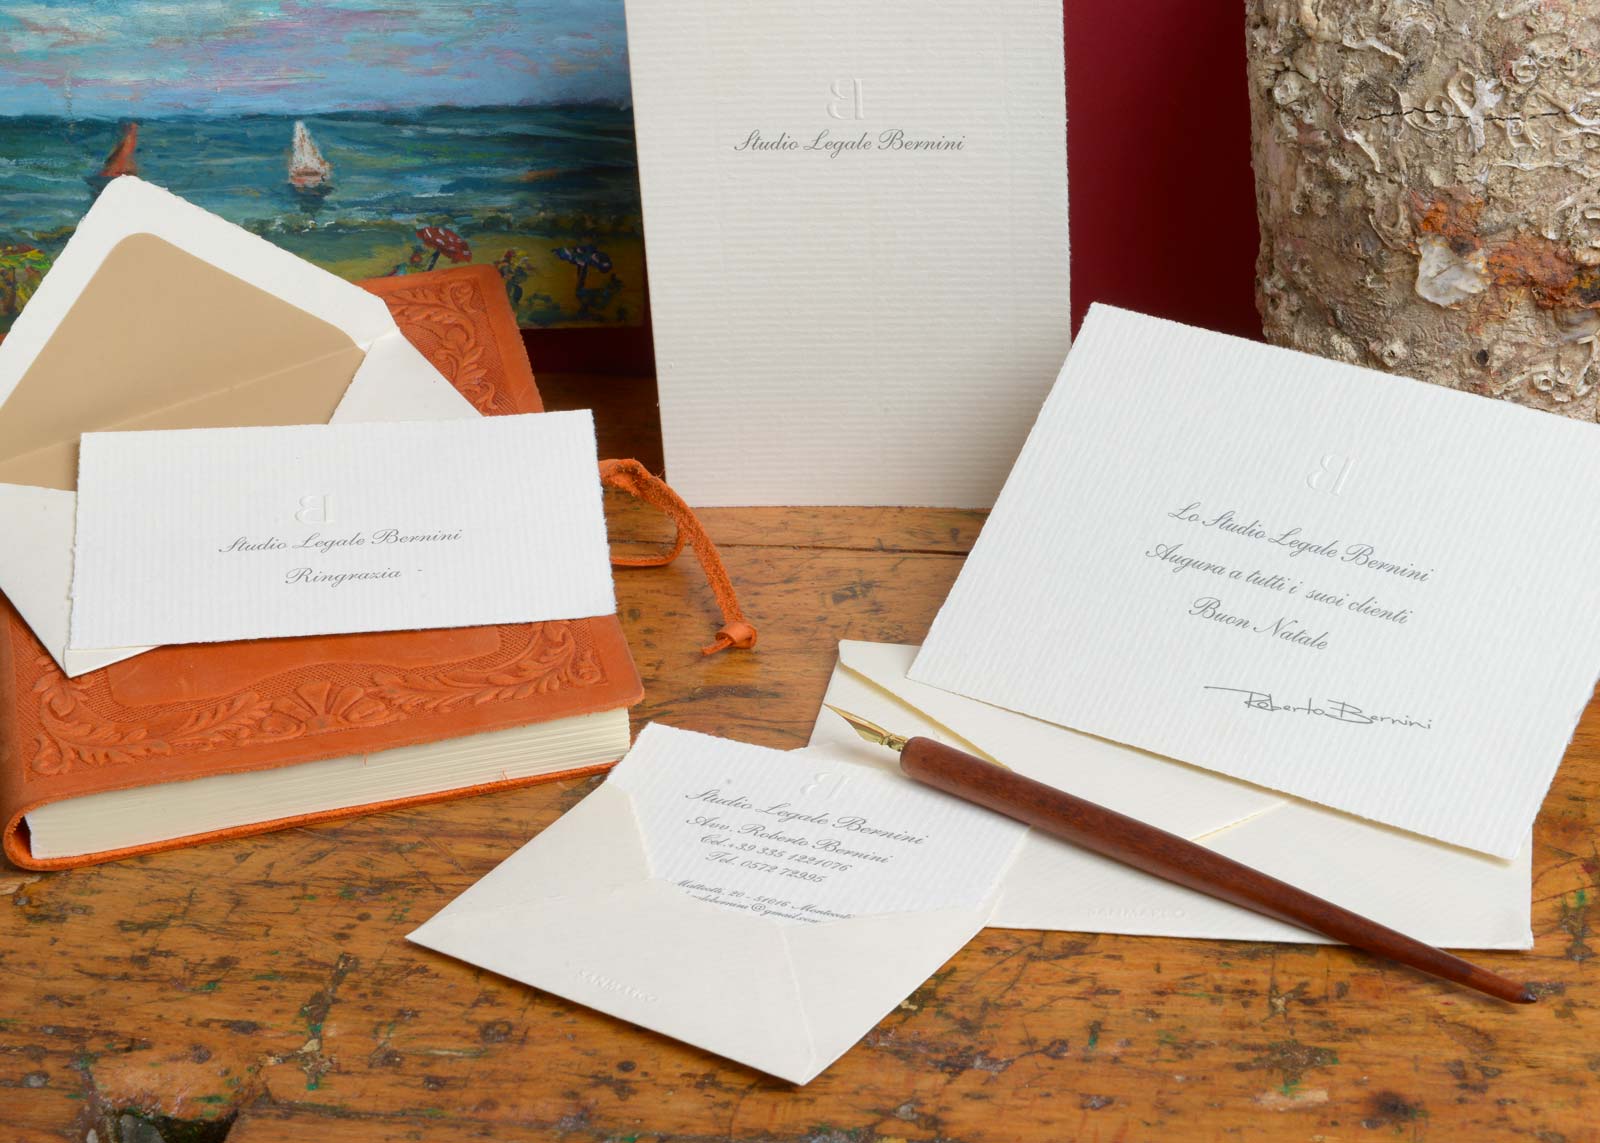 B
Studio Legale Bernini
B
Studio Legale Bernini
Ringrazia
B
Lo Studio Legale Bernini
Augura a tutti i suoi clienti
Buon Natale
Roberto Bernini
B
Studio Legale Bernini
Avv. Roberto Bernini
Cel. +39 335 1221076
Tel. 0572 72995
Matteotti, 20 - 51016 Monteca
bernini@gmail.com
SANMARCO
SANMARCO